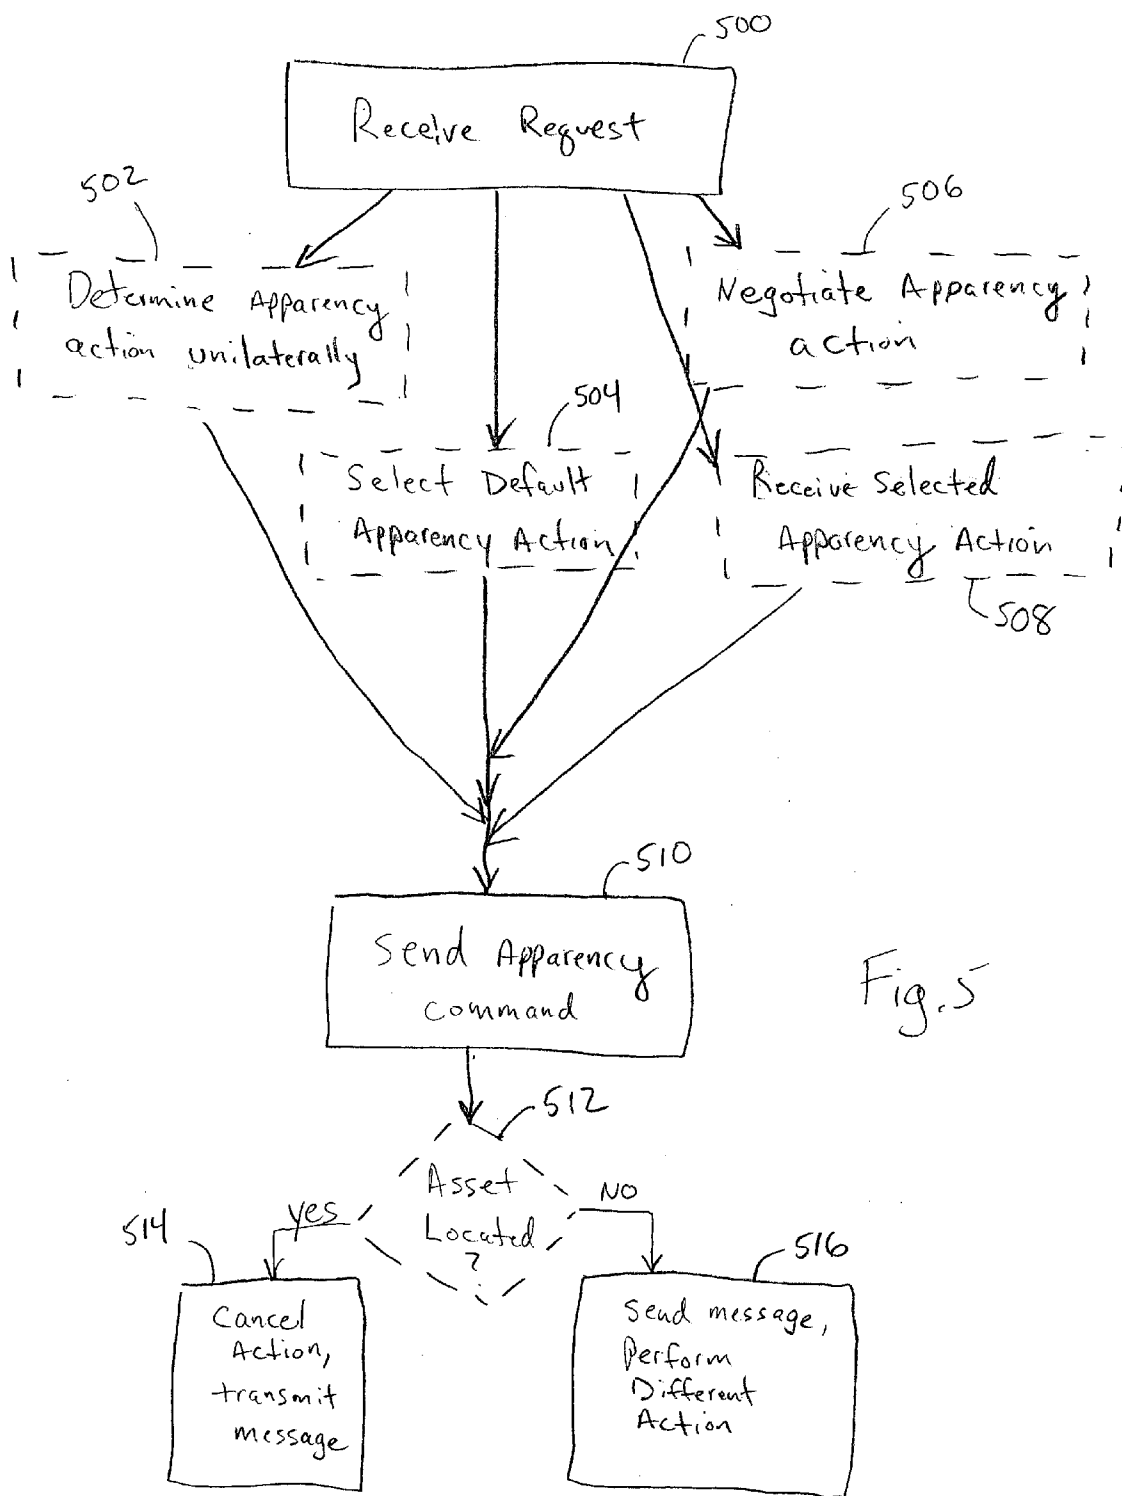 500
Receive Request
502
506
Determine Apparency
action unilaterally
Negotiate Apparency
action
504
Select Default
Apparency Action
Receive Selected
Apparency Action
508
510
Send Apparency
command
Fig. 5
512
Asset
Located
?
yes
NO
514
516
Cancel
Action,
transmit
message
Send message,
Perform
Different
Action